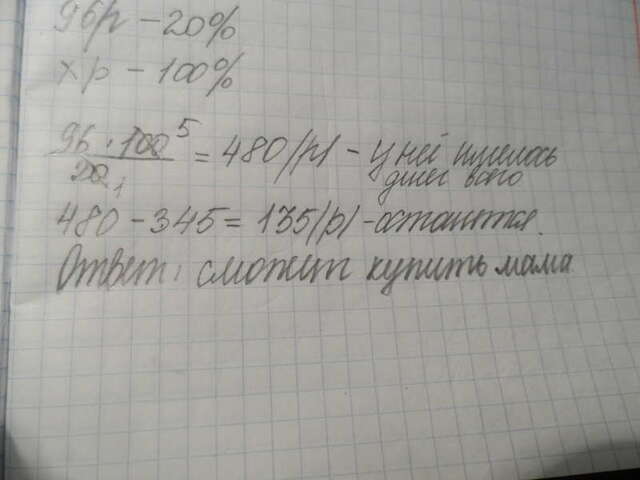 96р - 20%
хр - 100%
96 · 100 5
20 1
= 480 (р) - у неё имелось
денег всего
480 - 345 = 135 (р) - останется.
Ответ: сможет купить мама